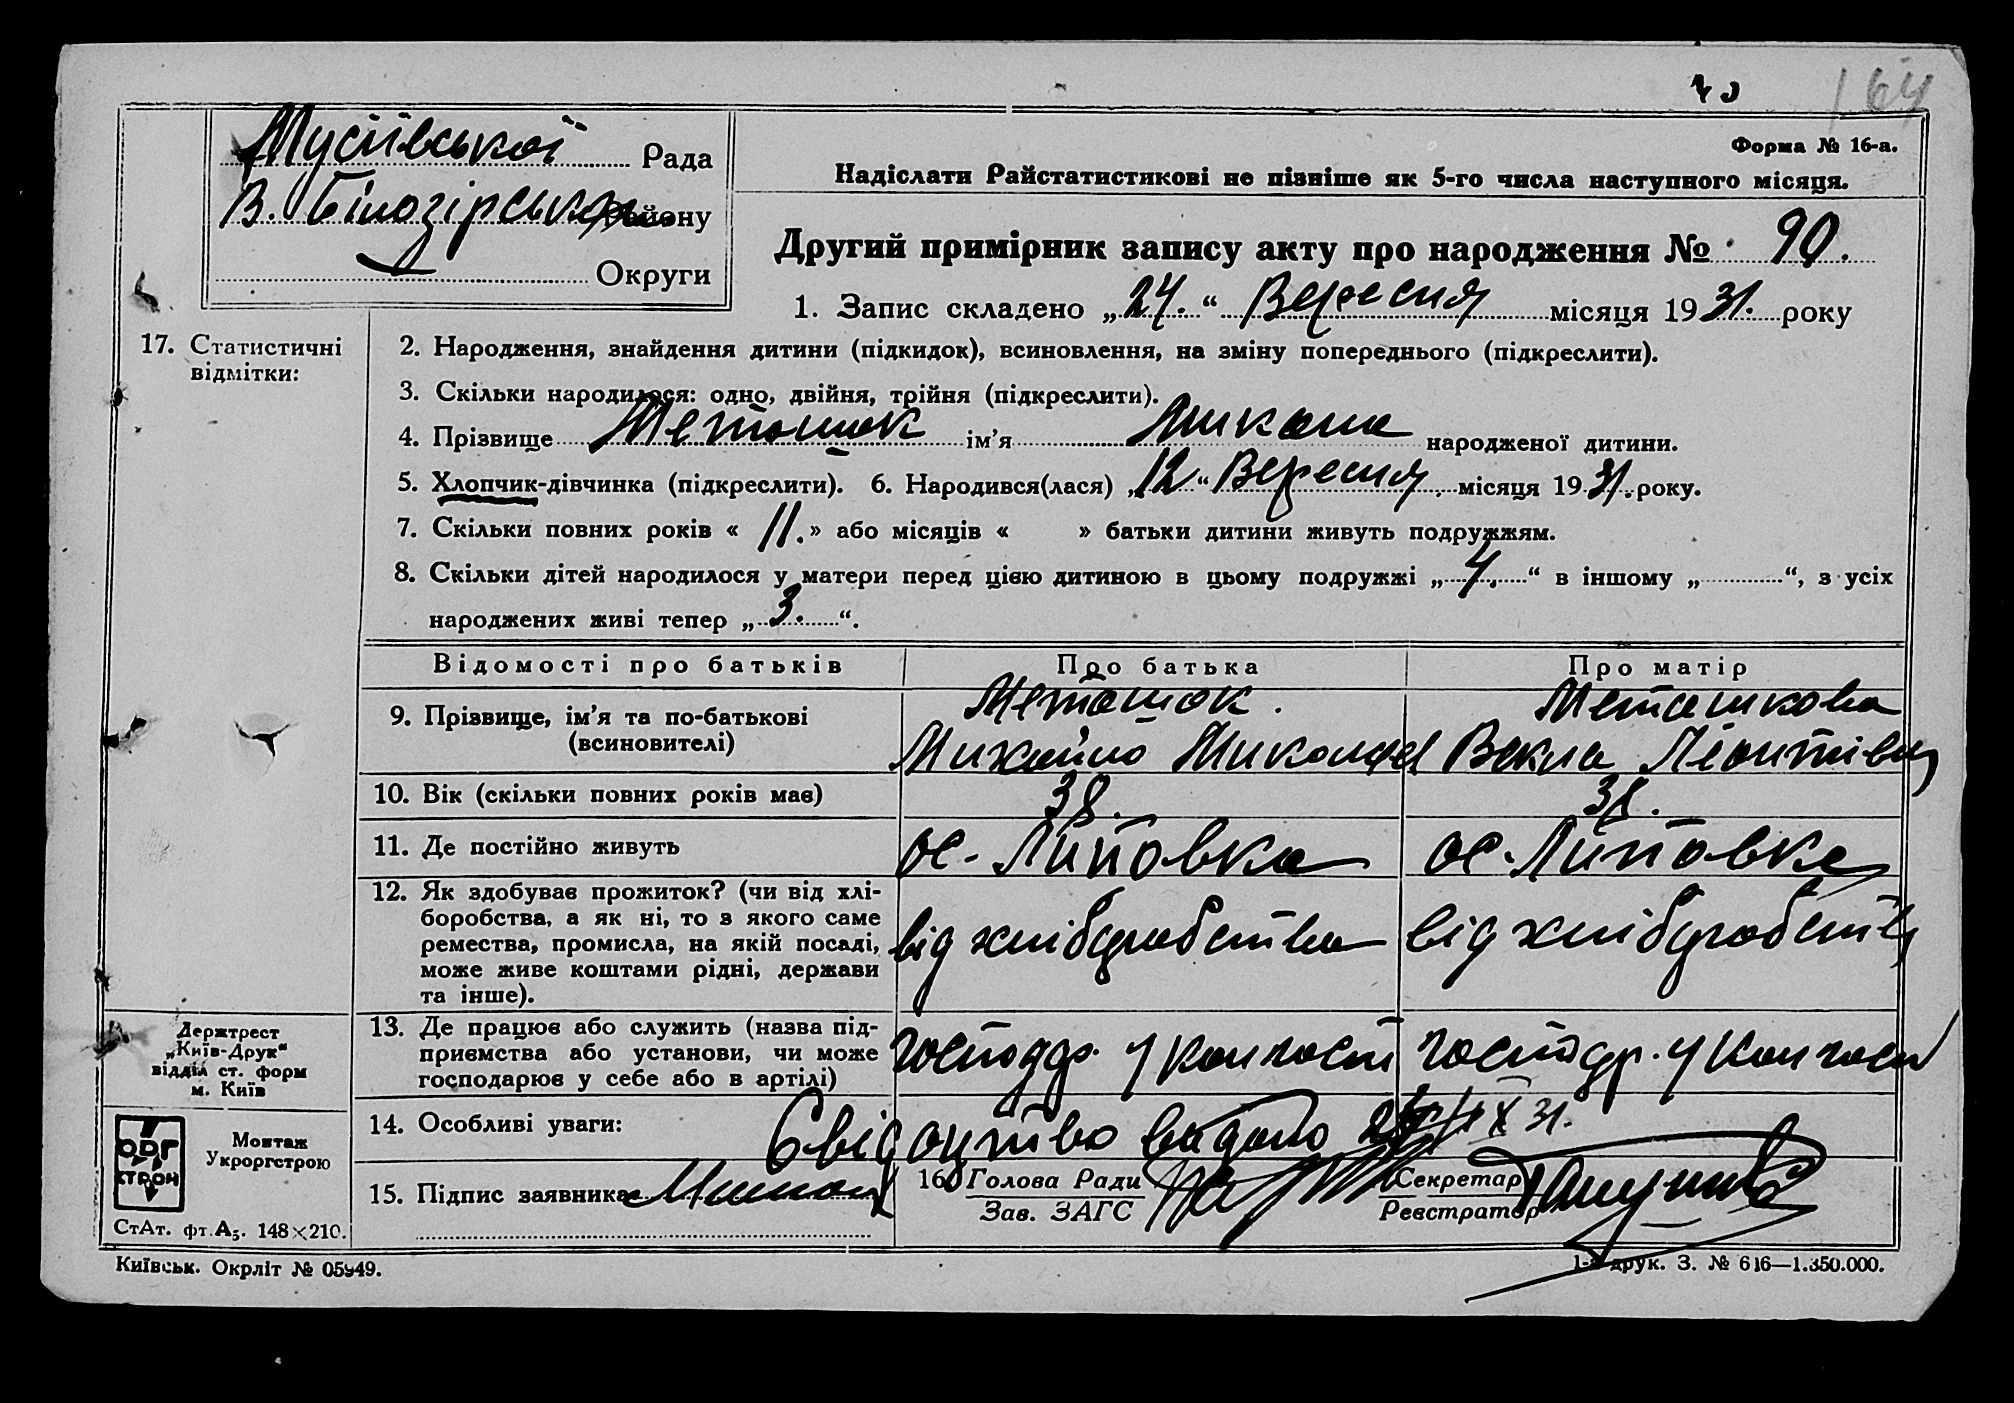 164
Форма № 16-а.
Мусіївської Рада
В. Білозірського Району
Округи
Надіслати Райстатистикові не пізніше як 5-го числа наступного місяця.
Другий примірник запису акту про народження № 90.
1. Запис складено „24.“ Вересня місяця 1931. року
17. Статистичні відмітки:
2. Народження, знайдення дитини (підкидок), всиновлення, на зміну попереднього (підкреслити).
3. Скільки народилося: одно, двійня, трійня (підкреслити).
4. Прізвище Меташок ім’я Микола народженої дитини.
5. Хлопчик-дівчинка (підкреслити). 6. Народився(лася) „12“ Вересня місяця 1931. року.
7. Скільки повних років « 11. » або місяців « » батьки дитини живуть подружжям.
8. Скільки дітей народилося у матери перед цією дитиною в цьому подружжі „4.“ в іншому „ “, з усіх
народжених живі тепер „3.“.
Відомості про батьків Про батька Про матір
9. Прізвище, ім’я та по-батькові (всиновителі)
Меташок. Михайло Микол
Меташкова Векла Леонтівна
10. Вік (скільки повних років має) 38. 38.
11. Де постійно живуть ос. Липовка ос. Липовка
12. Як здобуває прожиток? (чи від хлі-
боробства, а як ні, то з якого саме
ремества, промисла, на якій посаді,
може живе коштами рідні, держави
та інше).
від хлібороbства від хліборобств
13. Де працює або служить (назва під-
приємства або установи, чи може
господарює у себе або в артілі)
господар. у колгосп господар. у колгосп
14. Особливі уваги: Свідоцтво видано IX 31.
15. Підпис заявника
16 Голова Ради
Зав. ЗАГС
Секретар
Реєстратор
Держтрест
„Київ-Друк“
відділ ст. форм
м. Київ
ОРГ
СТРОМ
Монтаж
Укроргстрою
СтАт. фт.А5. 148×210.
Київськ. Окрліт № 05949.
1-а друк. З. № 616—1.350.000.